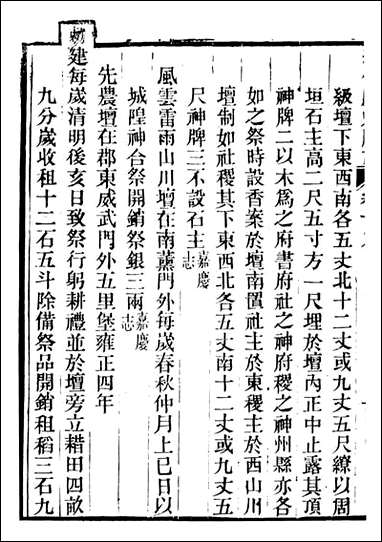 級壇下東西南各五丈北十二丈或九丈五尺繚以周
垣石主高二尺五寸方一尺埋於壇內正中止露其頂
神牌二以木為之府書府社之神府稷之神州縣亦各
如之祭時設香案於壇南置社主於東稷主於西山川
壇制如社稷其下東西北各五丈南十二丈或九丈五
尺神牌三不設石主嘉慶志
風雲雷雨山川壇在南薰門外每歲春秋仲月上巳日以
城隍神合祭開銷祭銀三兩嘉慶志
先農壇在郡東威武門外五里堡雍正四年
勅建每歲清明後亥日致祭行躬耕禮並於壇旁立耤田四畝
九分歲收租十二石五斗除備祭品開銷租稻三石九